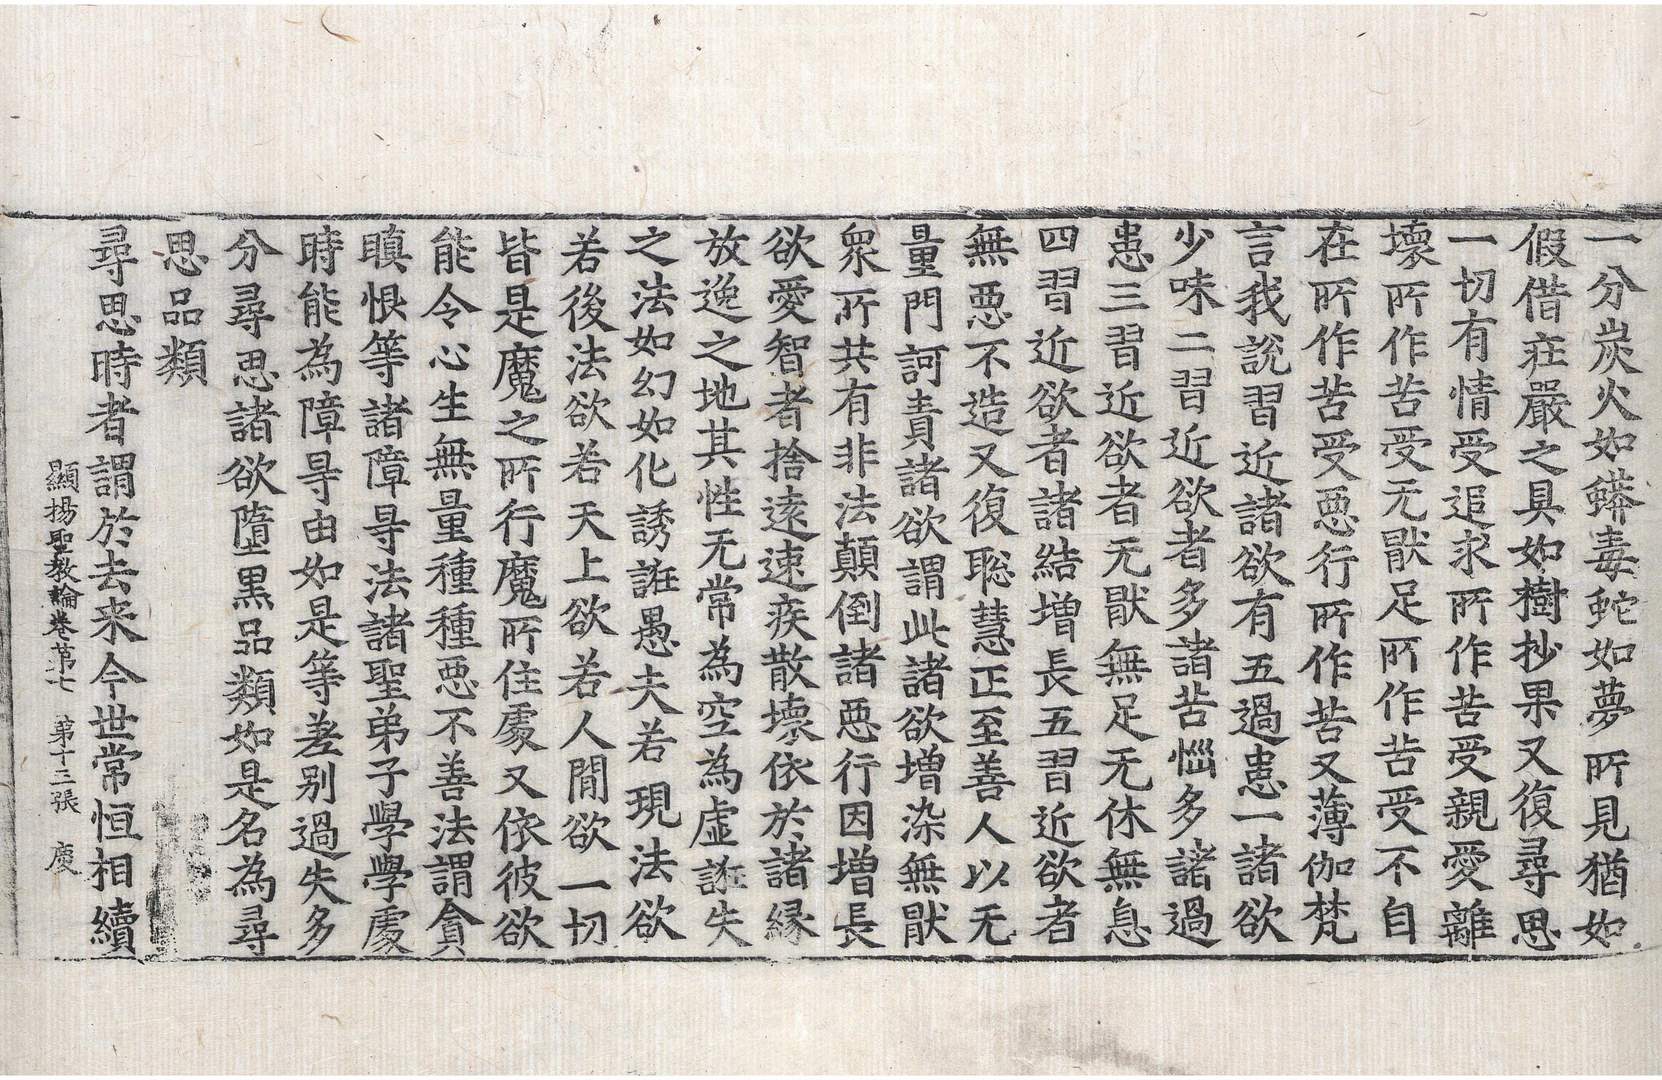 一分炭火如蟒毒蛇如夢所見猶如
假借莊嚴之具如樹抄果又復尋思
一切有情受追求所作苦受親愛離
壞所作苦受无猒足所作苦受不自
在所作苦受惡行所作苦又薄伽梵
言我說習近諸欲有五過患一諸欲
少味二習近欲者多諸苦惱多諸過
患三習近欲者无猒無足无休無息
四習近欲者諸結增長五習近欲者
無惡不造又復聡慧正至善人以无
量門訶責諸欲謂此諸欲增染無猒
衆所共有非法顛倒諸惡行因增長
欲愛智者捨遠速疾散壞依於諸緣
放逸之地其性无常為空為虛誑失
之法如幻如化誘誑愚夫若現法欲
若後法欲若天上欲若人間欲一切
皆是魔之所行魔所住處又依彼欲
能令心生無量種種惡不善法謂貪
瞋恨等諸障㝵法諸聖弟子學學處
時能為障㝵由如是等差別過失多
分尋思諸欲墮黑品類如是名為尋
思品類
尋思時者謂於去来今世常恒相續
顯揚聖教論卷第七　第十三張　庚